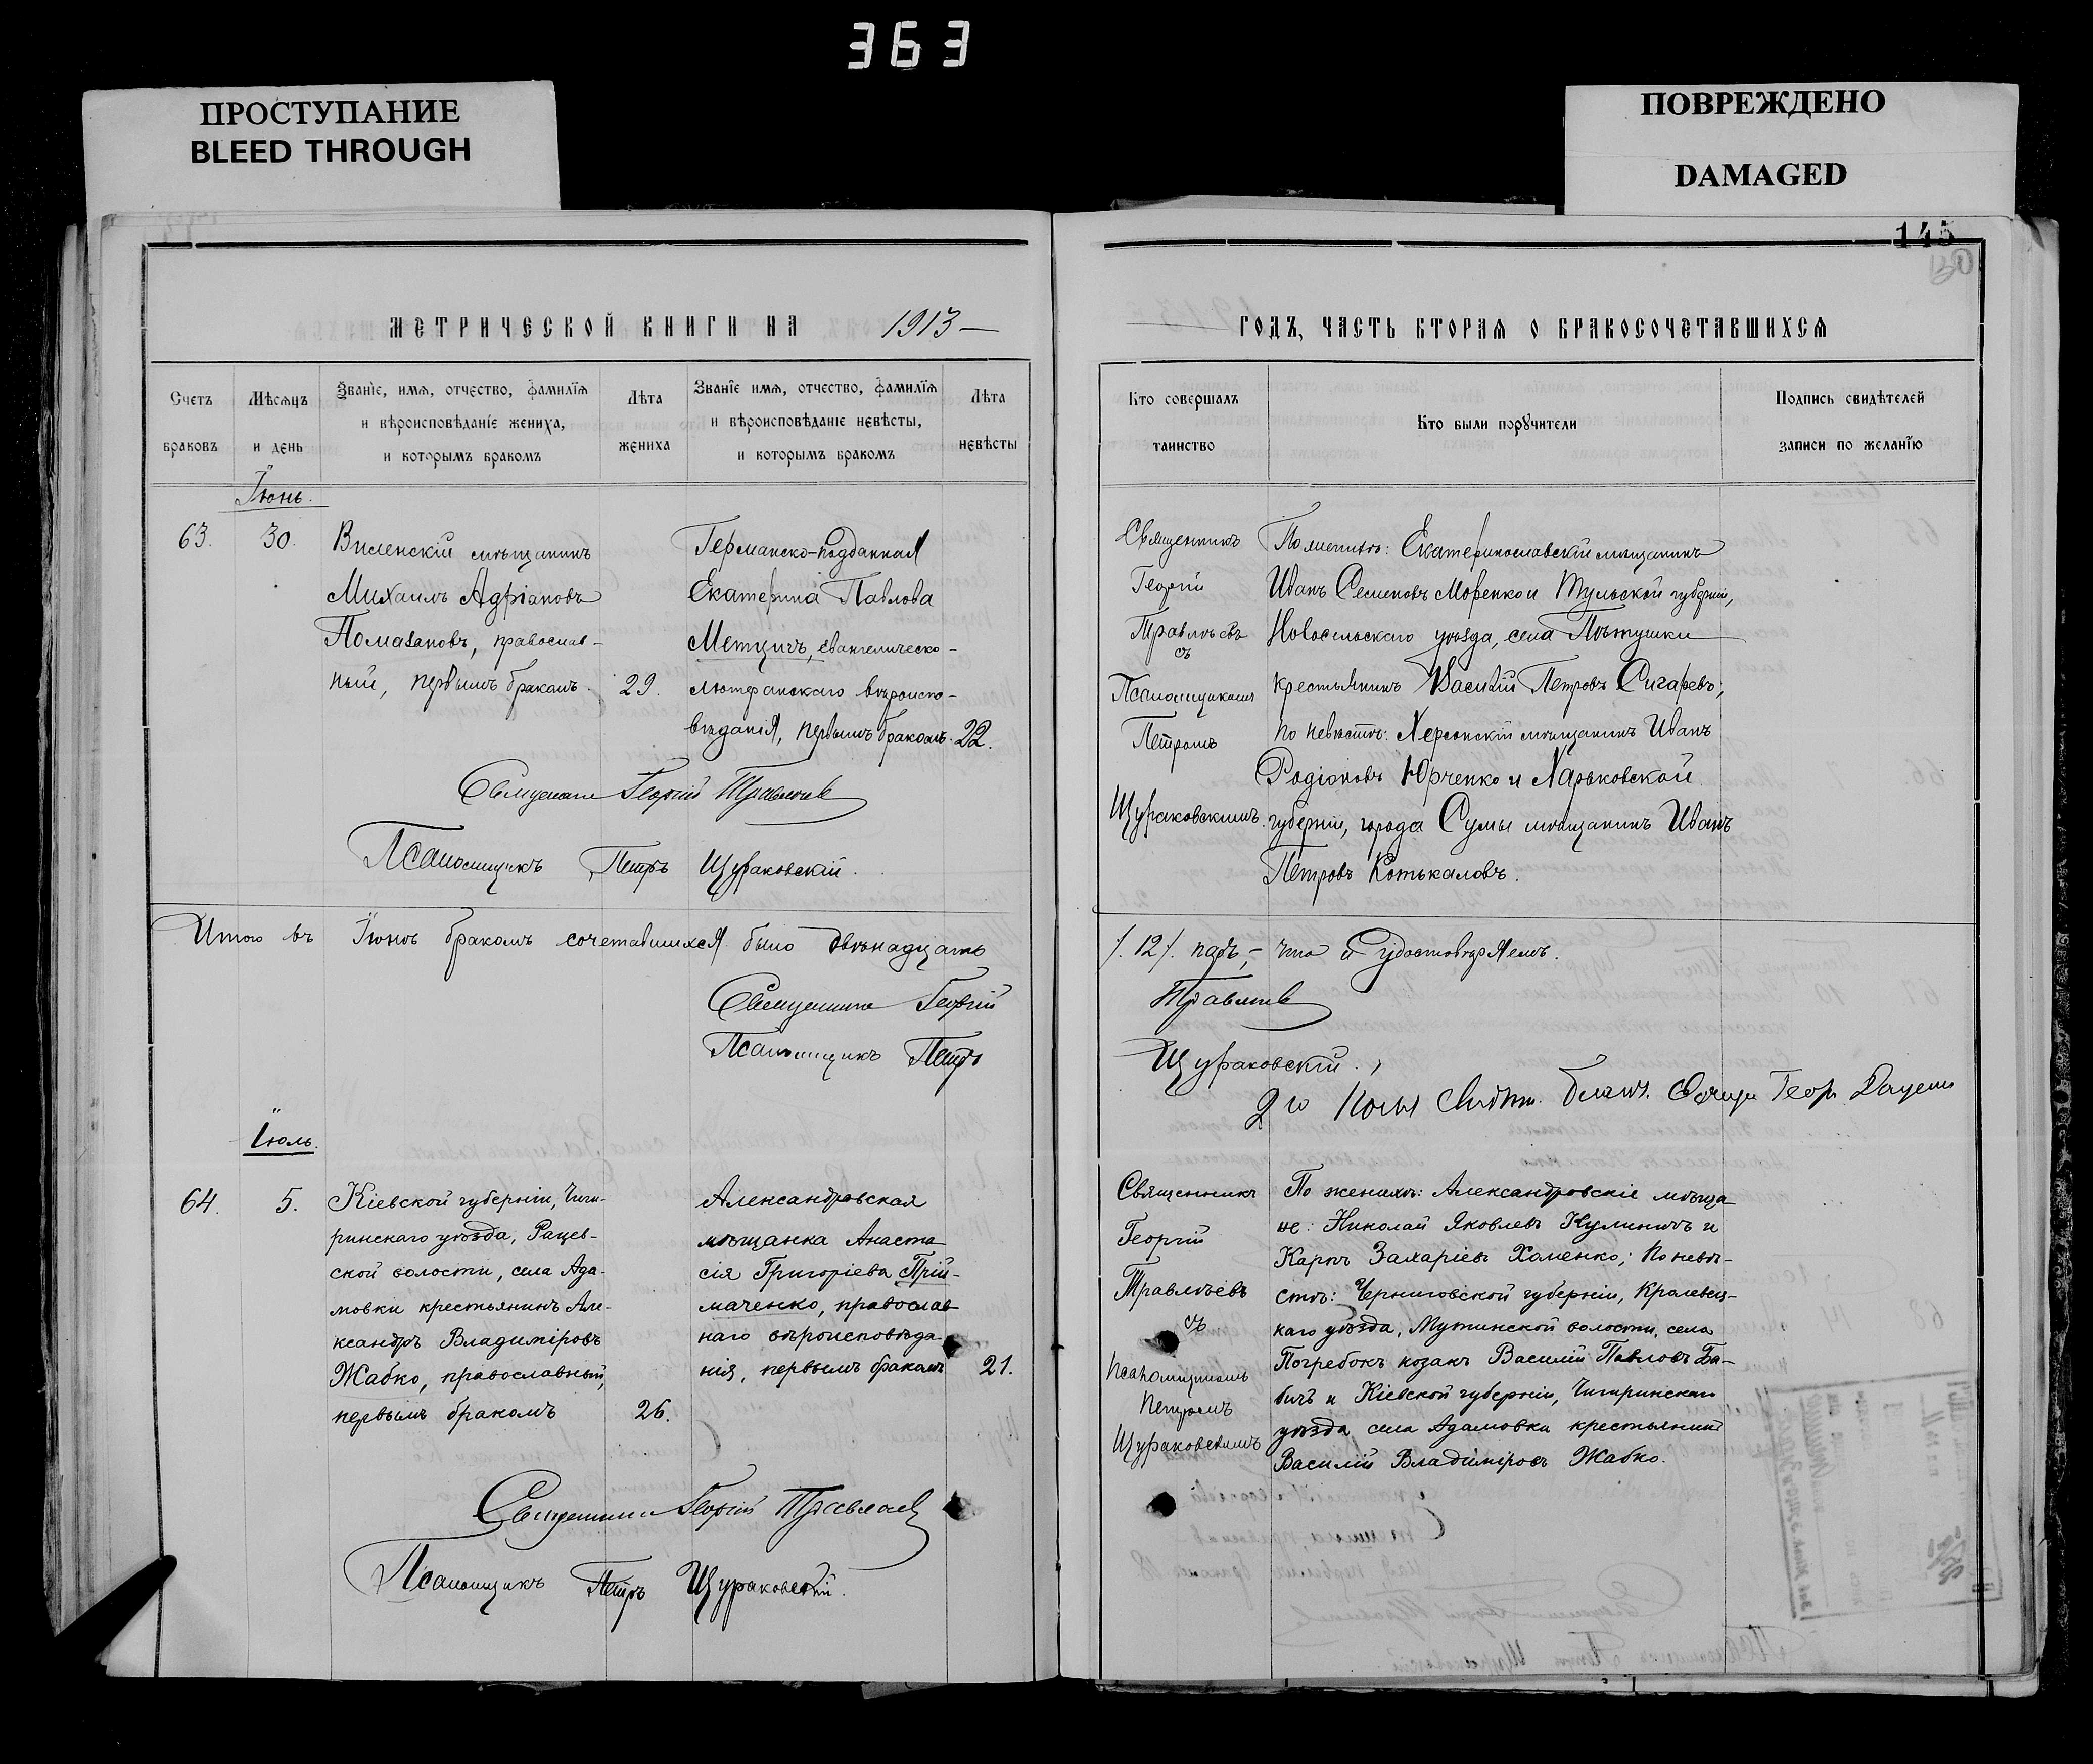 363
ПРОСТУПАНИЕ
BLEED THROUGH
ПОВРЕЖДЕНО
DAMAGED
145
МЕТРИЧЕСКОЙ КНИГИ НА 1913
ГОДЪ, ЧАСТЬ ВТОРАЯ О БРАКОСОЧЕТАВШИХСЯ
Счетъ
браковъ
Мѣсяцъ
и день
Званіе, имя, отчество, фамилія
и вѣроисповѣданіе жениха,
и которымъ бракомъ
Лѣта
жениха
Званіе имя, отчество, фамилія
и вѣроисповѣданіе невѣсты,
и которымъ бракомъ
Лѣта
невѣсты
Кто совершалъ
таинство
Кто были поручители
Подпись свидѣтелей
записи по желанію
Іюнь.
63.
30.
Виленскій мѣщанинъ
Михаилъ Адріановъ
Помазановъ, православ-
ный, первымъ бракомъ.
29.
Германско-подданная
Екатерина Павлова
Метцигъ, евангелическо-
лютеранскаго вѣроиспо-
вѣданія, первымъ бракомъ.
22.
Священникъ
Георгій
Травлѣевъ
съ
Псаломщикомъ
Петромъ
Щураковскимъ.
По женихѣ: Екатеринославскій мѣщанинъ
Иванъ Семеновъ Моренко и Тульской губерніи,
Новосильскаго уѣзда, села Пѣтушки
крестьянинъ Василій Петровъ Сигаревъ;
по невѣстѣ: Херсонскій мѣщанинъ Иванъ
Родіоновъ Юрченко и Харьковской
губерніи, города Сумы мѣщанинъ Иванъ
Петровъ Котькаловъ.
Священникъ Георгій Травлѣевъ
Псаломщикъ Петръ Щураковскій.
Итого въ Іюнѣ бракомъ сочетавшихся было двѣнадцать
/.12/. паръ,- что и удостовѣряемъ.
Священникъ Георгій
Травлѣевъ
Псаломщикъ Петръ
Щураковскій.
Іюль.
64.
5.
Кіевской губерніи, Чиги-
ринскаго уѣзда, Рацев-
ской волости, села Ада-
мовки крестьянинъ Але-
ксандръ Владиміровъ
Жабко, православный,
первымъ бракомъ
26.
Александровская
мѣщанка Анаста
сія Григоріева Прій-
маченко, православ
наго вѣроисповѣда-
нія, первымъ бракомъ
21.
Священникъ
Георгій
Травлѣевъ
съ
Псаломщикомъ
Петромъ
Щураковскимъ
По женихѣ: Александровскіе мѣща-
не: Николай Яковлевъ Кулиничъ и
Карпъ Захаріевъ Хоменко; По невѣ-
стѣ: Черниговской губерніи, Кролевец-
каго уѣзда, Мутинской волости, села
Погребокъ козакъ Василій Павловъ Ба-
бичъ и Кіевской губерніи, Чигиринскаго
уѣзда села Адамовки крестьянинъ
Василій Владиміровъ Жабко.
Священникъ Георгій Травлѣевъ
Псаломщикъ Петръ Щураковскій.